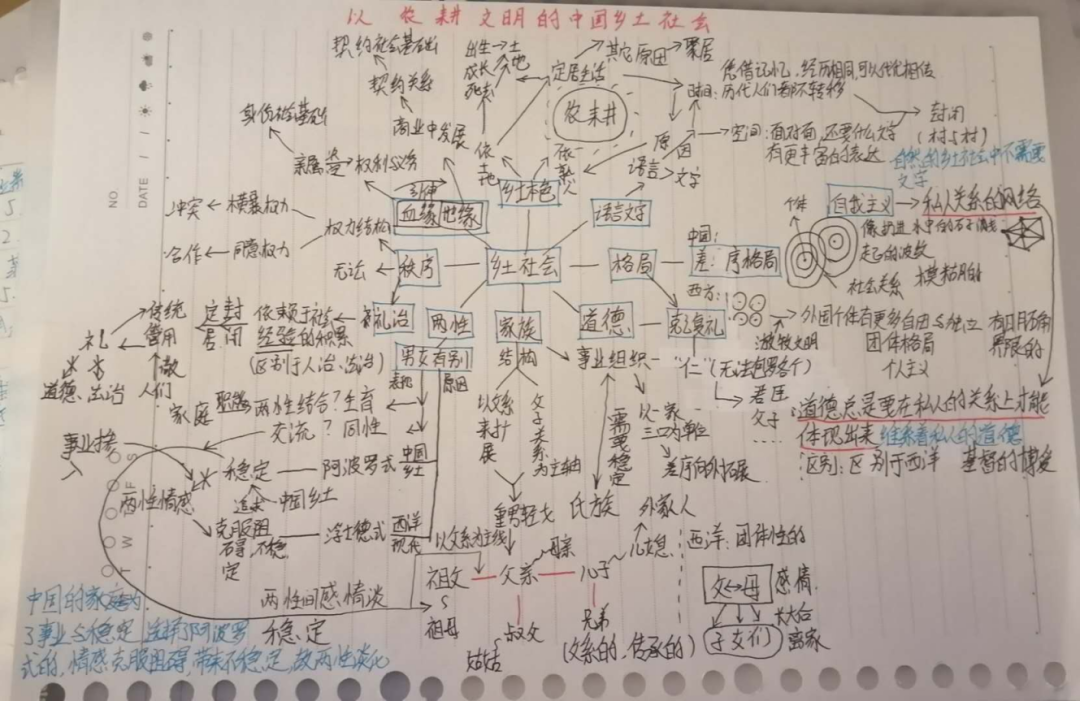 以农耕文明的中国乡土社会
契约社会基础
契约关系
商业中发展
身份社会基础
亲属 → 权利义务
出生→土
成长
死去
定居生活
其它原因→聚居
农耕
凭借记忆、经历相同,可以代代相传
时间:历代人们都不转移
空间:面对面,还要什么文字
有更丰富的表达
封闭
(村与村)
自然的乡土社会中不需要
文字
原因
语言
文字
乡土本色
血缘 地缘
语言文字
NO.
DATE
冲突←横暴权力
合作←同意权力
权力结构
无法
秩序
乡土社会
格局
中国:
差序格局
西方:
个体
社会关系
自我主义→私人关系的网络
模糊的
外国个体有更多自由与独立
团体格局
个人主义
有明确
界限的
游牧文明
礼治
两性
家族
道德
克复礼
男女有别
结构
事业组织
"仁"(无法包罗多个)
君臣
父子
礼
传统
管用
教
人们
道德、法治
定居
封闭
依赖于社会
经验的积累
(区别于人治、法治)
表现
原因
家庭
两性结合?生育
交流?同性
以父系
来扩
展
父子关系
为主轴
需要稳定
以一家
三口为单位
差序向外拓展
道德总是要在私人的关系上才能
体现出来
维系着私人的道德
区别:区别于西洋
基督的博爱
事业
两性情感
稳定
阿波罗式
中国
乡土
追求
中国乡土
克服阻
碍,不稳
定
浮士德式
西洋
现代
重男轻女
氏族
外家人
以父系为主线
母亲
儿媳
祖父
父亲
儿子
祖母
叔父
姑姑
兄弟
(父系的、传承的)
西洋:团体性的
父↔母
感情
子女们
长大后
离家
两性间感情淡
稳定
中国的家庭为
了事业与稳定,选择了阿波罗
式的,情感克服阻碍,带来不稳定,故两性淡化